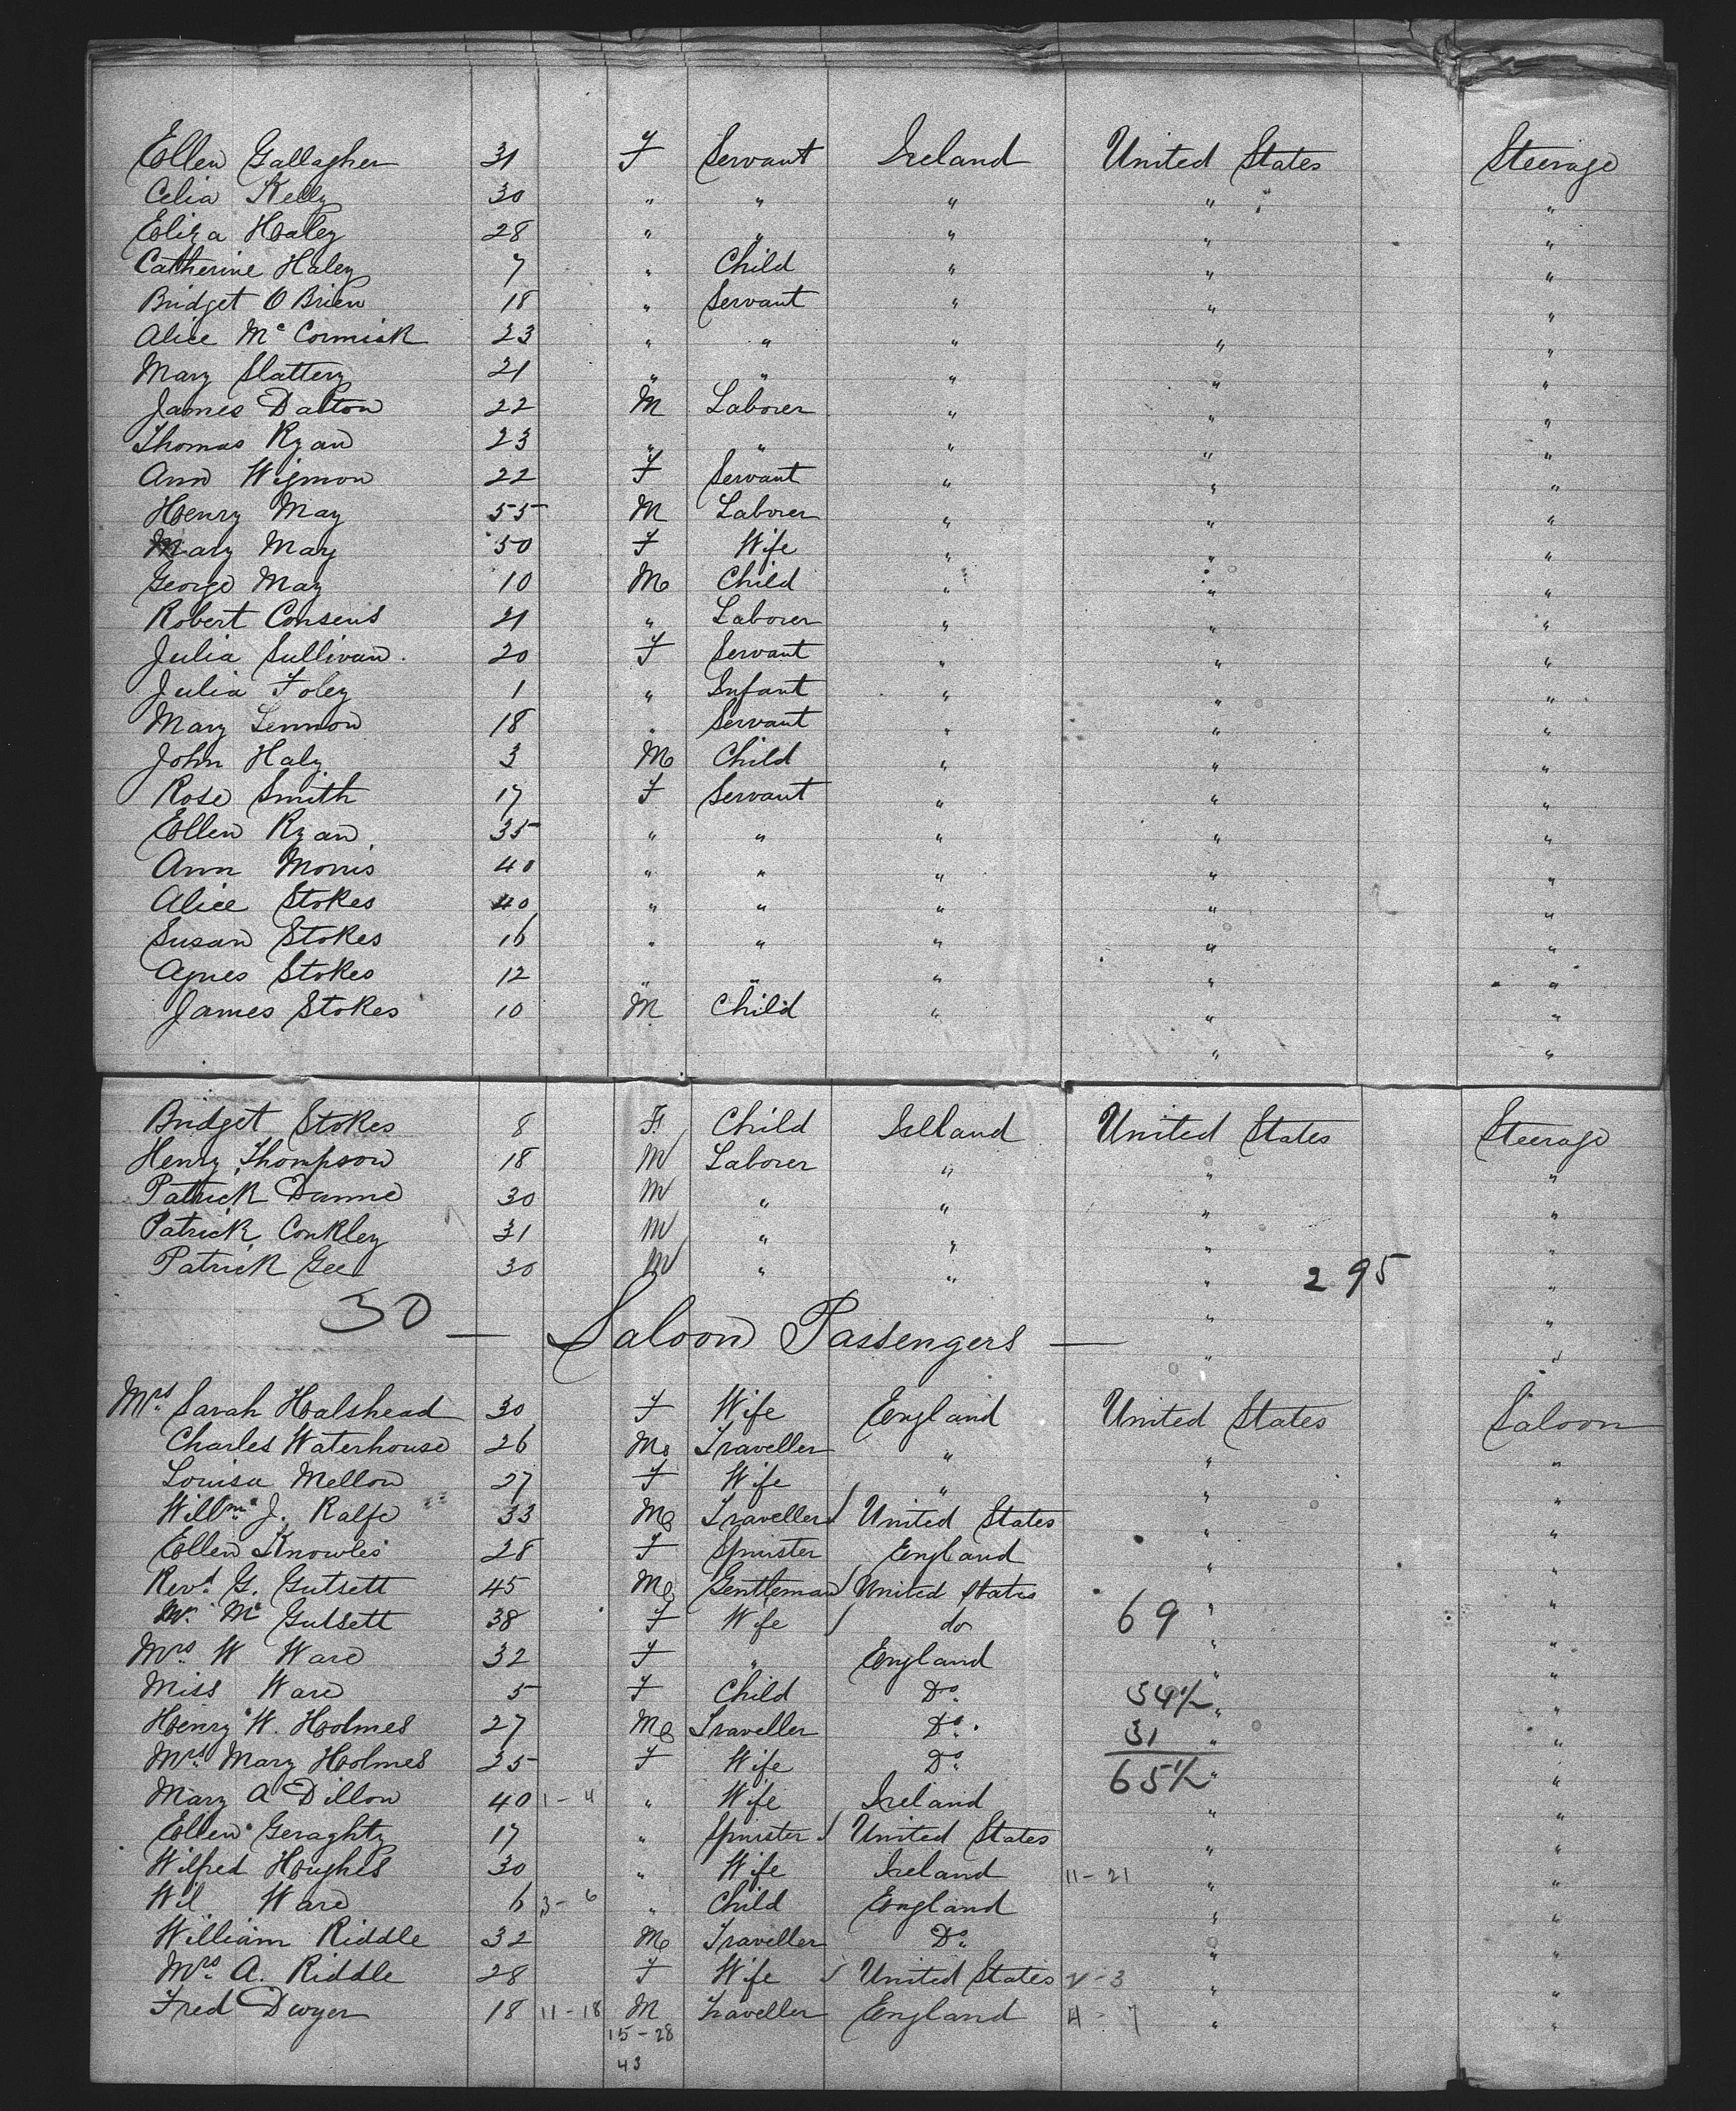 Ellen Gallagher 31 F Servant Ireland United States Steerage
Celia Kelly 30 " " " " "
Eliza Haley 28 " " " " "
Catherine Haley 7 " Child " " "
Bridget O Brien 18 " Servant " " "
Alice Mc Cormick 23 " " " " "
Mary Slattery 21 " " " " "
James Dalton 22 M Laborer " " "
Thomas Ryan 23 " " " " "
Ann Wigmon 22 F Servant " " "
Henry May 55 M Laborer " " "
Mary May 50 F Wife " " "
George May 10 M Child " " "
Robert Consens 21 " Laborer " " "
Julia Sullivan 20 F Servant " " "
Julia Foley 1 " Infant " " "
Mary Lennon 18 " Servant " " "
John Haly 3 M Child " " "
Rose Smith 17 F Servant " " "
Ellen Ryan 35 " " " " "
Ann Morris 40 " " " " "
Alice Stokes 40 " " " " "
Susan Stokes 16 " " " " "
Agnes Stokes 12 " " " " "
James Stokes 10 M Child " " "
" "
Bridget Stokes 8 F Child Ireland United States Steerage
Henry Thompson 18 M Laborer " " "
Patrick Dunne 30 M " " " "
Patrick Conkley 31 M " " " "
Patrick Gee 30 M " " " 295 "
30 — Saloon Passengers — " "
Mrs Sarah Halshead 30 F Wife England United States Saloon
Charles Waterhouse 26 M Traveller " " "
Louisa Mellon 27 F Wife " " "
Willm J. Ralfe 33 M Traveller / United States " "
Ellen Knowles 28 F Spinster England " "
Revd G. Gutsett 45 M Gentleman / United States " "
Mc Gutsett 38 F Wife / do 69 " "
Mrs W Ware 32 F " England " "
Miss Ware 5 F Child Do 34½ " "
Henry W. Holmes 27 M Traveller Do 31 " "
Mrs Mary Holmes 25 F Wife Do 65½ " "
Mary A Dillon 40 1-4 " Wife Ireland " "
Ellen Geraghty 17 " Spinster / United States " "
Wilfred Hughes 30 " Wife Ireland 11-21 " "
Wil. Ware 6 3-6 " Child England " "
William Riddle 32 M Traveller Do " "
Mrs A. Riddle 28 F Wife / United States v-3 " "
Fred Dwyer 18 11-18 M Traveller England 4-7 " "
15-28
43